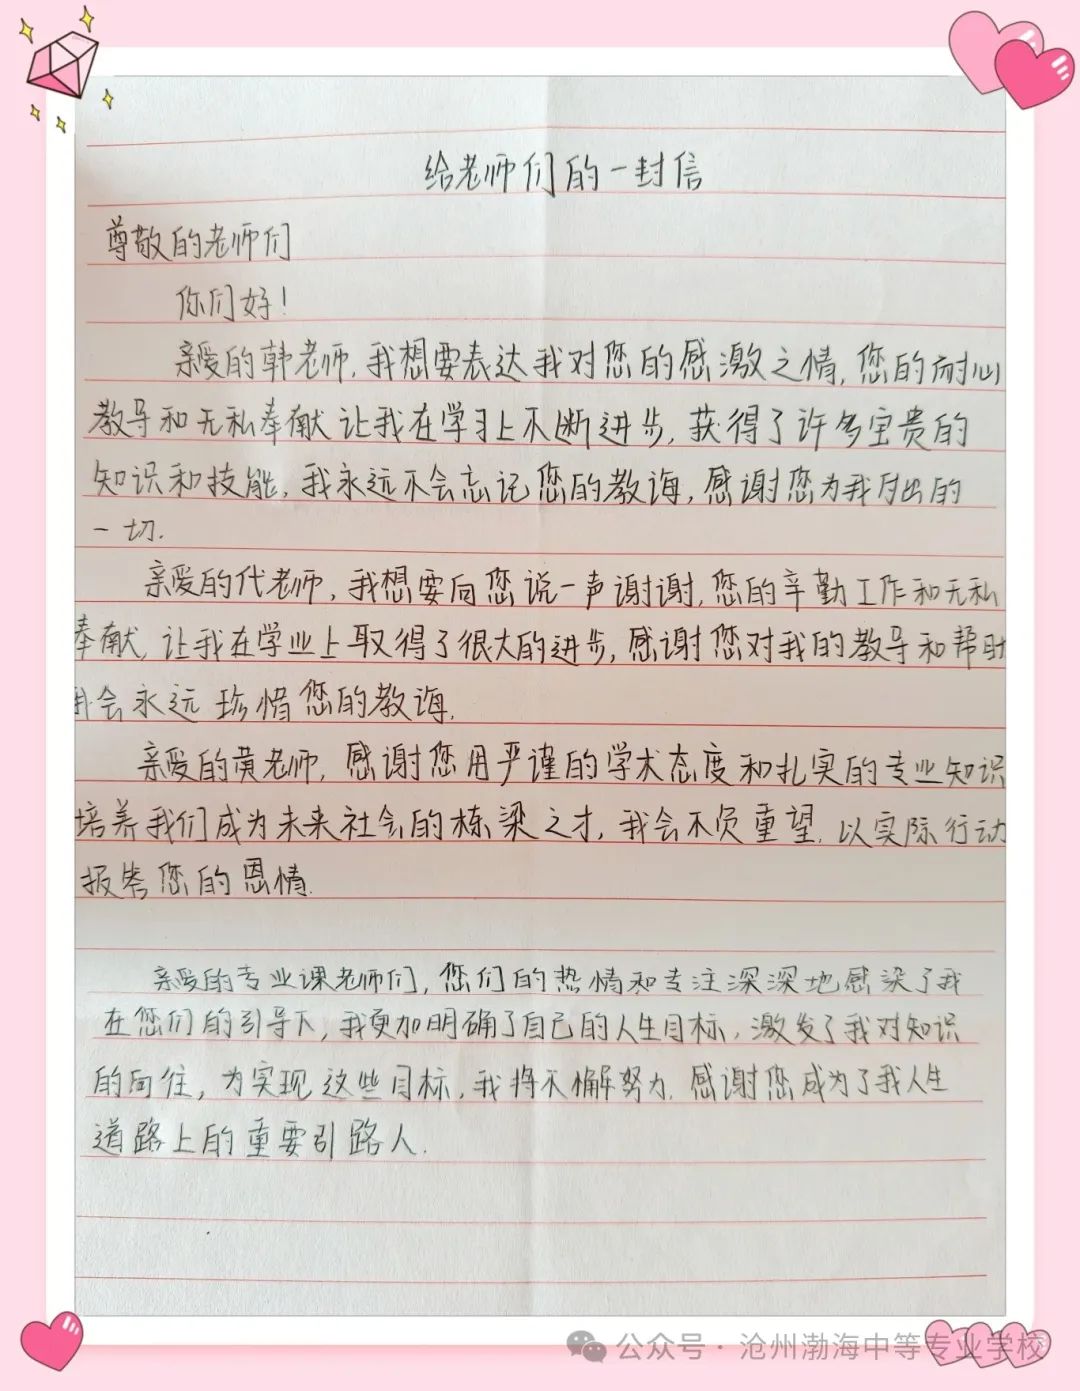 给老师们的一封信
尊敬的老师们
你们好！
亲爱的韩老师,我想要表达我对您的感激之情,您的耐心
教导和无私奉献让我在学习上不断进步,获得了许多宝贵的
知识和技能,我永远不会忘记您的教诲,感谢您为我付出的
一切.
亲爱的代老师,我想要向您说一声谢谢,您的辛勤工作和无私
奉献,让我在学业上取得了很大的进步,感谢您对我的教导和帮助
我会永远珍惜您的教诲.
亲爱的黄老师,感谢您用严谨的学术态度和扎实的专业知识
培养我们成为未来社会的栋梁之才,我会不负重望.以实际行动
报答您的恩情.
亲爱的专业课老师们,您们的热情和专注深深地感染了我
在您们的引导下,我更加明确了自己的人生目标,激发了我对知识
的向往,为实现这些目标,我将不懈努力.感谢您成为了我人生
道路上的重要引路人.
公众号·沧州渤海中等专业学校